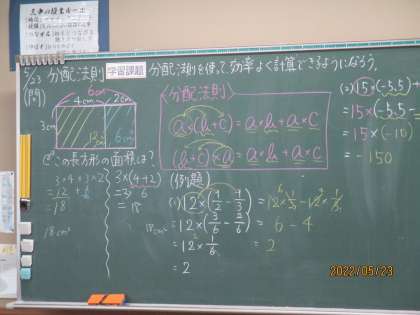 5/23 分配法則 学習課題 分配法則を使って効率よく計算できるようになろう。
(問)
6cm
4cm 2cm
3cm
12cm² 6cm²
この長方形の面積は?
3×4+3×2
=12+6
=18
18cm²
3×(4+2)
=3×6
=18
18cm²
分配法則
a×(b+c)=a×b+a×c
(b+c)×a=a×b+a×c
(例題)
(1) 12×(1/2-1/3)=12×1/2-12×1/3
=12×(3/6-2/6)=6-4
=12×1/6=2
=2
(2) 15×(-5.5)+
=15×(-5.5
=15×(-10)
=-150
2022/05/23